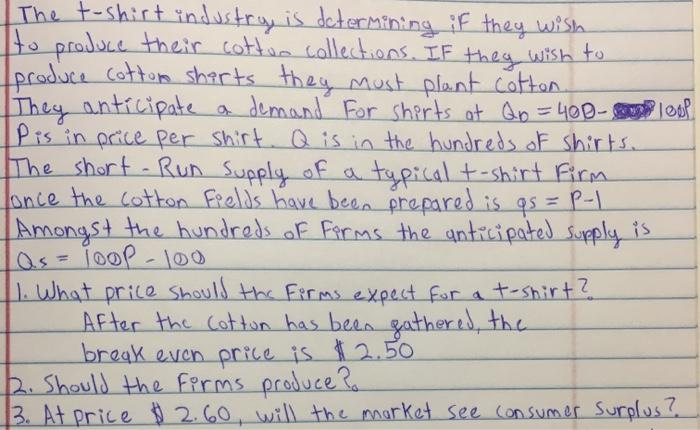 The t-shirt industry is determining if they wish
to produce their cotton collections. IF they wish to
produce cotton shirts they must plant cotton.
They anticipate a demand For shirts of QD = 400- 100P.
P is in price per shirt. Q is in the hundreds of shirts.
The short-Run supply of a typical t-shirt Firm
once the cotton Fields have been prepared is qs = P-1
Amongst the hundreds of Firms the anticipated supply is
Qs = 100P - 100
1. What price should the Firms expect for a t-shirt?
After the cotton has been gathered, the
break even price is $2.50
2. Should the firms produce?
3. At price $2.60, will the market see consumer surplus?